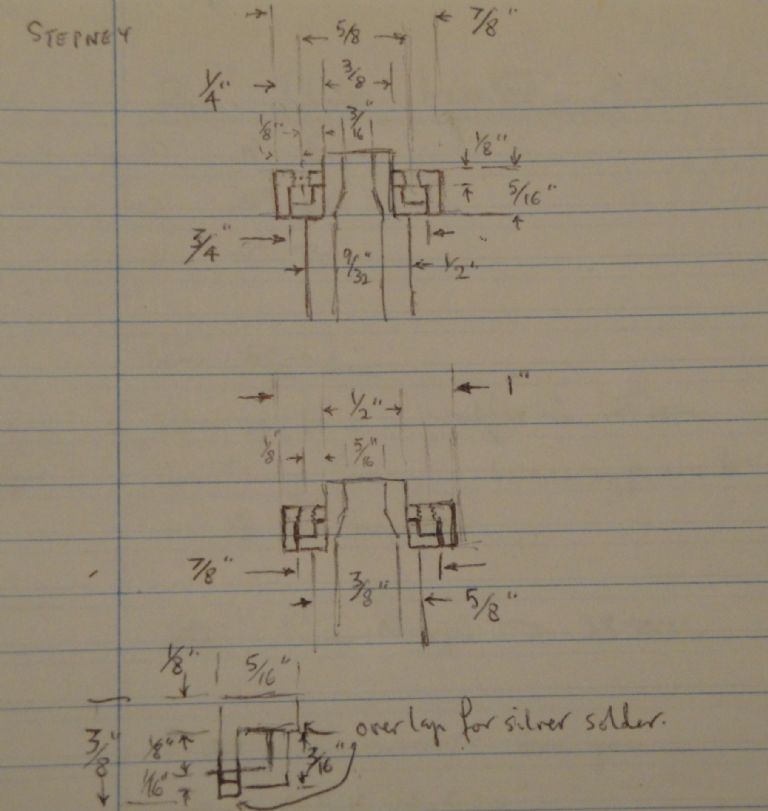 STEPNEY
7/8"
5/8
1/4"
3/8
1/8"
3/16"
1/8"
5/16"
3/4"
9/32"
1/2"
1"
1/2"
1/8"
5/16"
7/8"
3/8"
5/8"
1/8"
5/16"
overlap for silver solder.
3/8"
1/8"
3/16"
1/16"